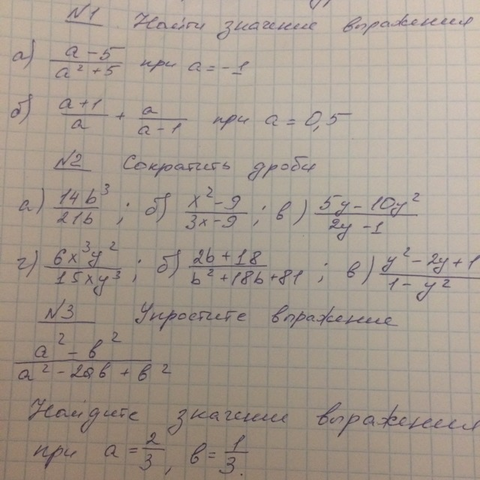 №1 Найти значение выражения
а) (a-5)/(a²+5) при a=-1
б) (a+1)/a + a/(a-1) при a=0,5
№2 Сократить дроби
а) 14b³/21b ; б) (x²-9)/(3x-9) ; в) (5y-10y²)/(2y-1)
г) 6x³y²/15xy³ ; б) (2b+18)/(b²+18b+81) ; в) (y²-2y+1)/(1-y²)
№3 Упростите выражение
(a²-b²)/(a²-2ab+b²)
Найдите значение выражения
при a=2/3, b=1/3.